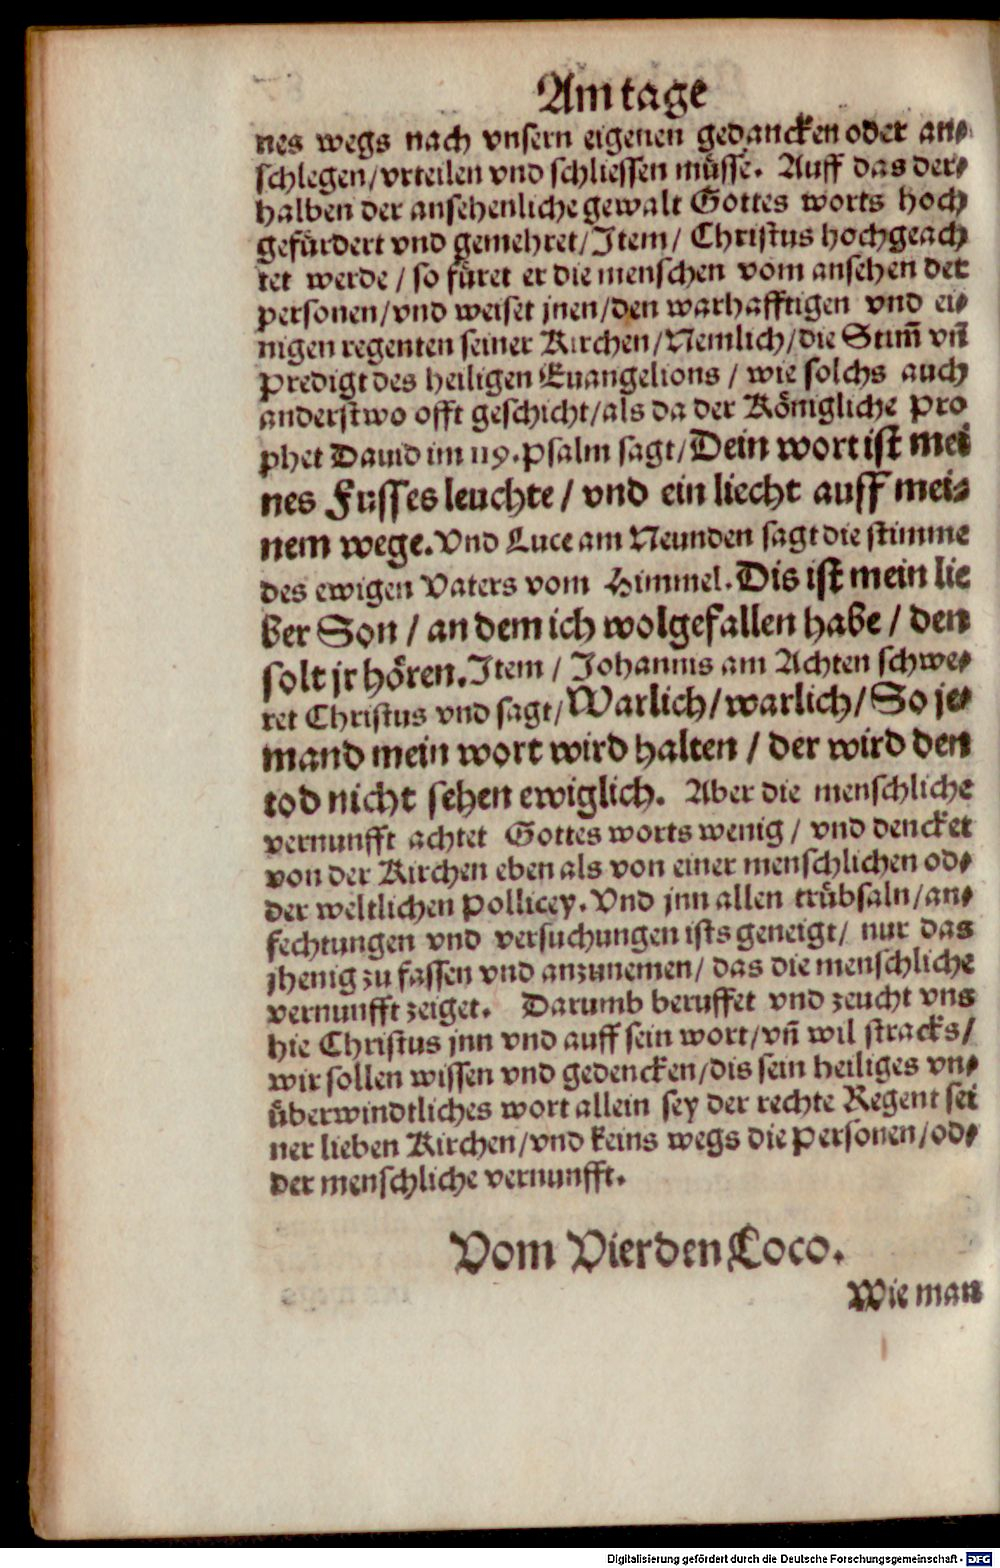 Am tage
nes wegs nach vnsern eigenen gedancken oder an⸗
schlegen/vrteilen vnd schliessen müsse. Auff das der⸗
halben der ansehenliche gewalt Gottes worts hoch
gefürdert vnd gemehret/Item/ Christus hochgeach
tet werde / so füret er die menschen vom ansehen der
personen/vnd weiset jnen/den warhafftigen vnd ei⸗
nigen regenten seiner Kirchen/Nemlich/die Stim̄ vn̄
Predigt des heiligen Euangelions / wie solchs auch
anderstwo offt geschicht/als da der Königliche Pro
phet Dauid im 119. Psalm sagt/Dein wort ist mei
nes Fusses leuchte / vnd ein liecht auff mei⸗
nem wege. Vnd Luce am Neunden sagt die stimme
des ewigen Vaters vom Himmel. Dis ist mein lie
ber Son / an dem ich wolgefallen habe / den
solt jr hören. Item / Johannis am Achten schwe⸗
ret Christus vnd sagt/Warlich/warlich/So je⸗
mand mein wort wird halten / der wird den
tod nicht sehen ewiglich. Aber die menschliche
vernunfft achtet Gottes worts wenig / vnd dencket
von der Kirchen eben als von einer menschlichen od⸗
der weltlichen Pollicey. Vnd jnn allen trübsaln/an⸗
fechtungen vnd versuchungen ists geneigt/ nur das
jhenig zu fassen vnd anzunemen/ das die menschliche
vernunfft zeiget. Darumb beruffet vnd zeucht vns
hie Christus jnn vnd auff sein wort/vn̄ wil stracks/
wir sollen wissen vnd gedencken/dis sein heiliges vn⸗
überwindtliches wort allein sey der rechte Regent sei
ner lieben Kirchen/vnd keins wegs die Personen/od⸗
der menschliche vernunfft.
Vom Vierden Loco.
Wie man
Digitalisierung gefördert durch die Deutsche Forschungsgemeinschaft - DFG